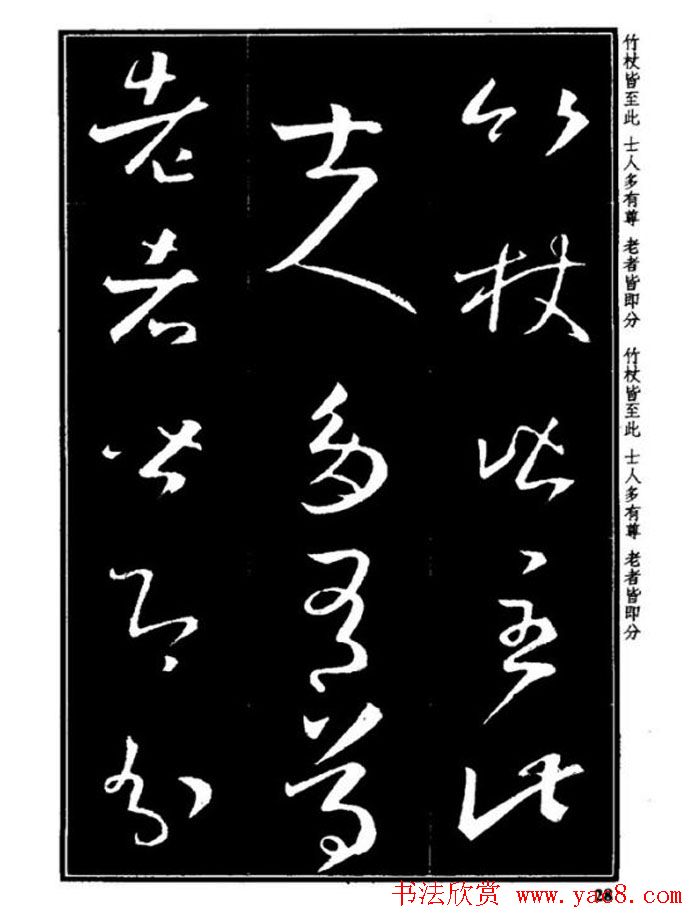 竹杖皆至此
士人多有尊
老者皆即分
竹杖皆至此 士人多有尊 老者皆即分 竹杖皆至此 士人多有尊 老者皆即分
28
书法欣赏 www.ya8.com